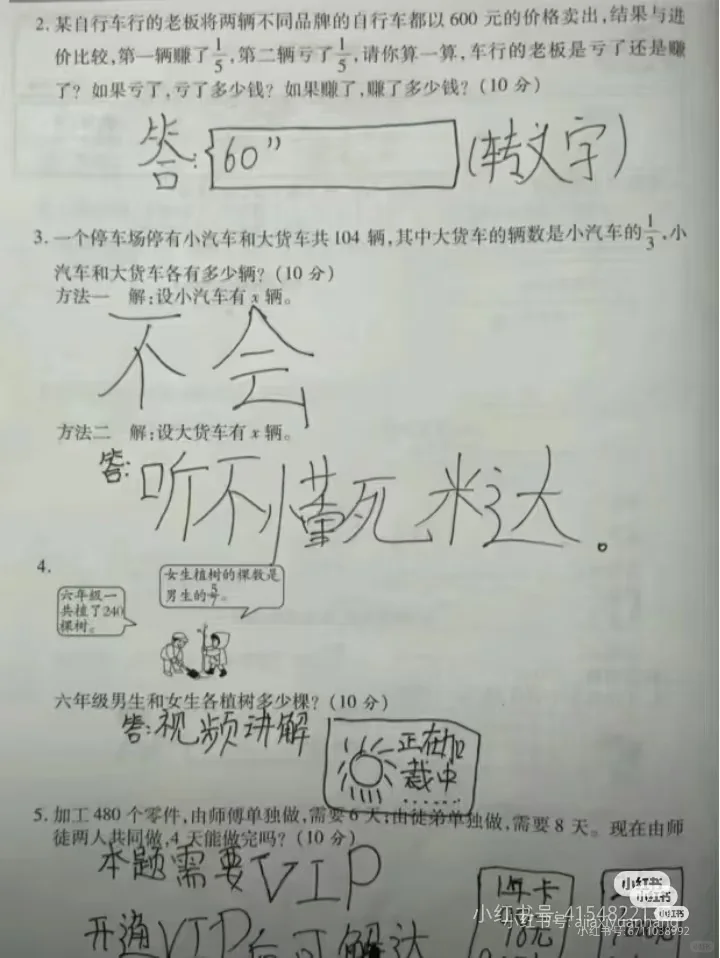 2. 某自行车行的老板将两辆不同品牌的自行车都以 600 元的价格卖出,结果与进
价比较,第一辆赚了1/5,第二辆亏了1/5,请你算一算,车行的老板是亏了还是赚
了?如果亏了,亏了多少钱?如果赚了,赚了多少钱?(10 分)
答: 60" (转文字)
3. 一个停车场停有小汽车和大货车共 104 辆,其中大货车的辆数是小汽车的1/3,小
汽车和大货车各有多少辆?(10 分)
方法一 解:设小汽车有 x 辆。
不会
方法二 解:设大货车有 x 辆。
答: 听不懂死米达。
4.
女生植树的棵数是
男生的5/7。
六年级一
共植了240
棵树。
六年级男生和女生各植树多少棵?(10 分)
答:视频讲解
正在加
载中
......
5. 加工 480 个零件,由师傅单独做,需要 6 天;由徒弟单独做,需要 8 天。现在由师
徒两人共同做,4 天能做完吗?(10 分)
本题需要VIP
开通VIP后可解达
年卡
小红书
小红书
小红书
小红书号: